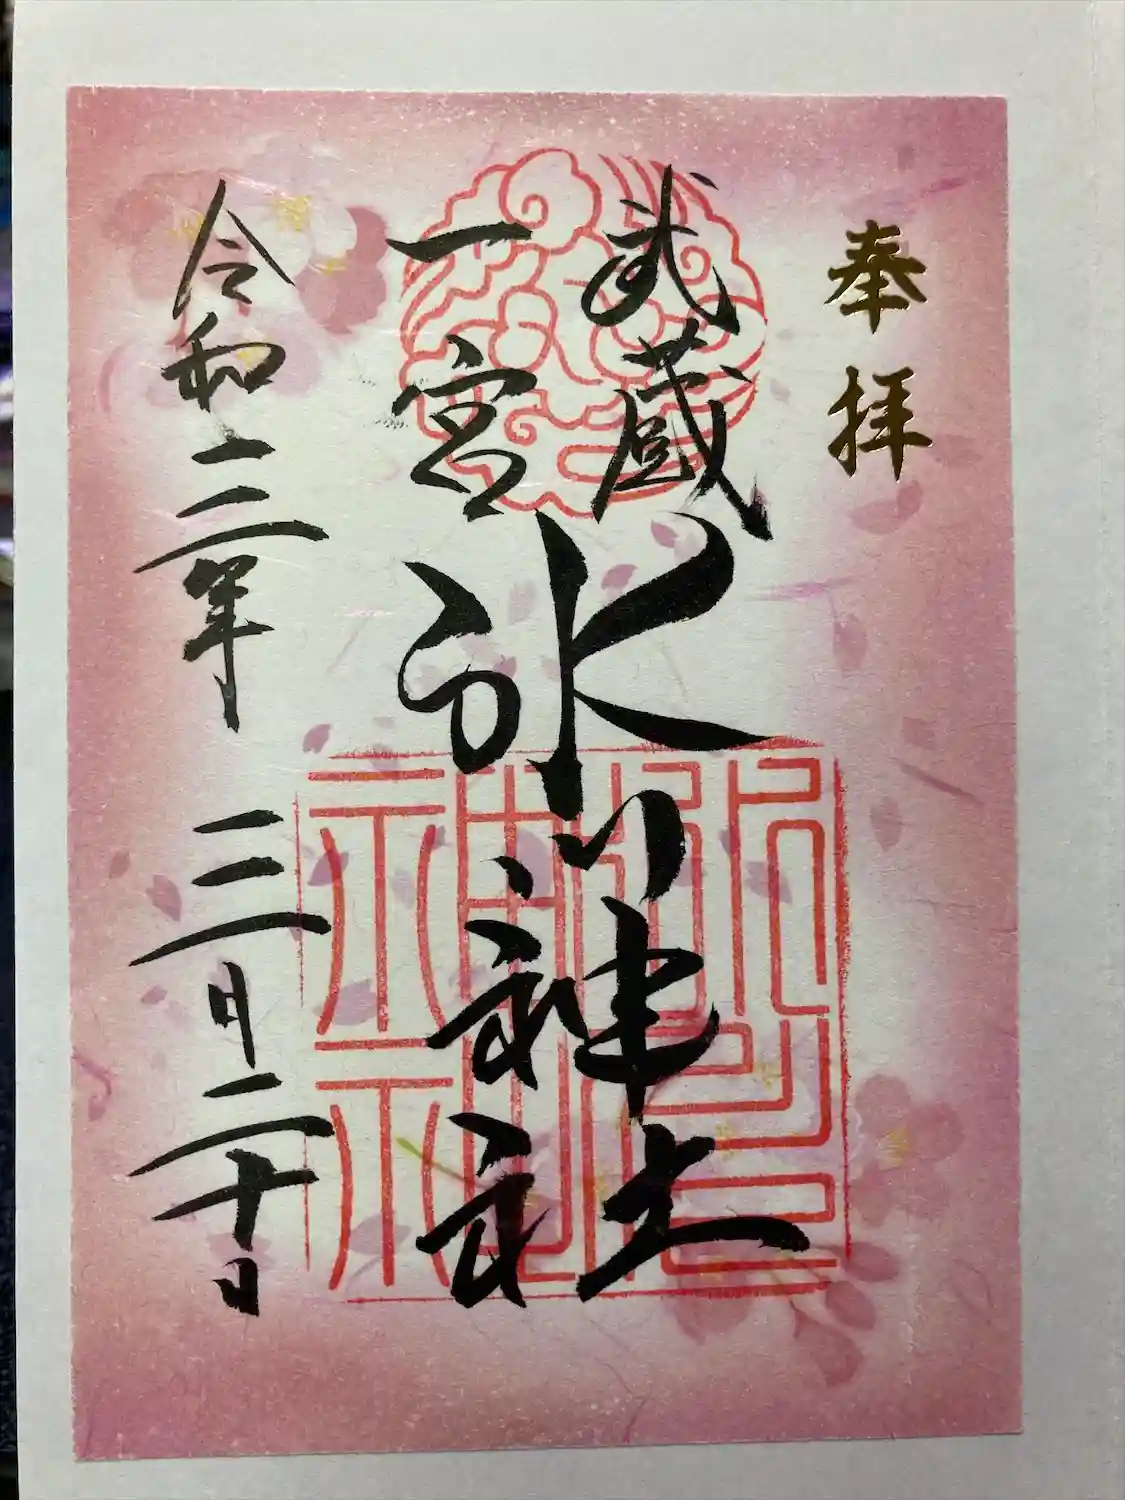 奉拝
武蔵
一宮
氷川神社
令和二年三月二十日